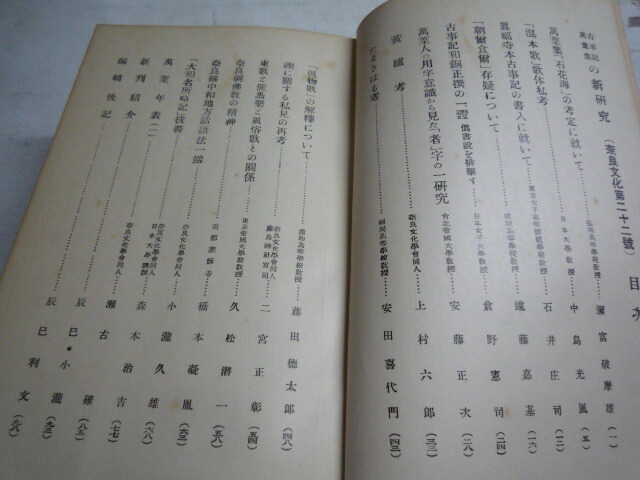 古事記
萬葉集 の新研究 (奈良文化第二十二號) 目次
萬葉集「石花海」の考定に就いて 福岡高等學校教授 彌富破摩雄 (一)
「混本歌」歌体私考 日本大學教授 中島光風 (五)
眞福寺本古事記の書入に就いて 石井庄司 (一一)
「朝爾食爾」存疑について 成城高等學校教授 遠藤嘉基 (一六)
日本女子大學校教授 倉野憲司 (二四)
古事記和銅正撰の一證 僞書説を排撃す 台北帝國大學教授 安藤正次 (二八)
萬葉人の用字意識から見た「者」字の一研究 奈良文化學會同人 上村六郎 (三三)
黄櫨考
たまきはる考 福岡高等學校教授 安田喜代門 (四三)
「戯物歌」の解釋について 浦和高等學校教授 藤田德太郎 (四八)
禊に關する私見の再考 奈良文化學會同人 二宮正彰 (五四)
東歌と催馬樂と風俗歌との關係 東京帝國大學助教授 久松潜一 (五八)
奈良朝佛教の精神 藥師寺 橋本凝胤 (六三)
奈良縣中和地方語語法一端 奈良文化學會同人 小瀧久雄 (六八)
「大和名所略記」抜書 森本治吉 (七七)
萬葉年表(二) 奈良文化學會同人 瀨古確 (八五)
新刊紹介 辰巳・小瀧 (九三)
編輯後記 辰巳利文 (九八)